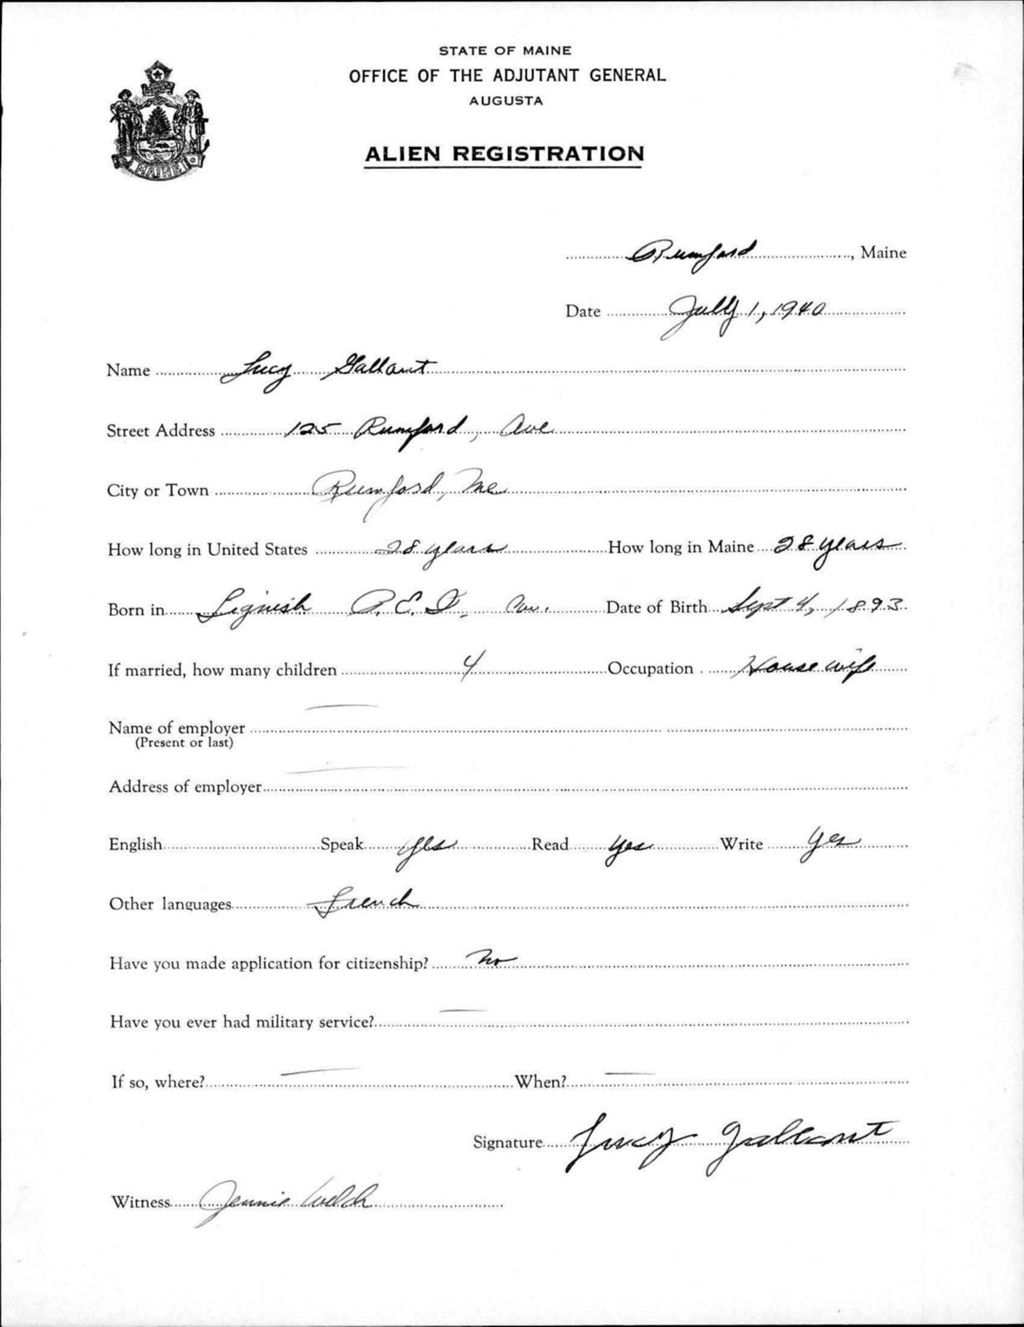 STATE OF MAINE
OFFICE OF THE ADJUTANT GENERAL
AUGUSTA
ALIEN REGISTRATION
MAINE
Rumford, Maine
Date July 1, 1940
Name Lucy Gallant
Street Address 125 Rumford, Ave.
City or Town Rumford, Me.
How long in United States 28 years How long in Maine 28 years
Born in P.E.I. Date of Birth Sept 4, 1893
If married, how many children 4 Occupation Housewife
Name of employer
(Present or last)
Address of employer
English Speak yes Read yes Write yes
Other languages French
Have you made application for citizenship? No
Have you ever had military service?
If so, where? When?
Signature Lucy Gallant
Witness Jennie Welch